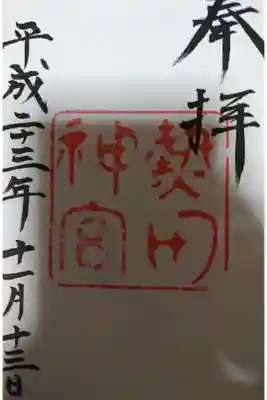 奉拝
熱田
神宮
平成二十三年十一月十三日